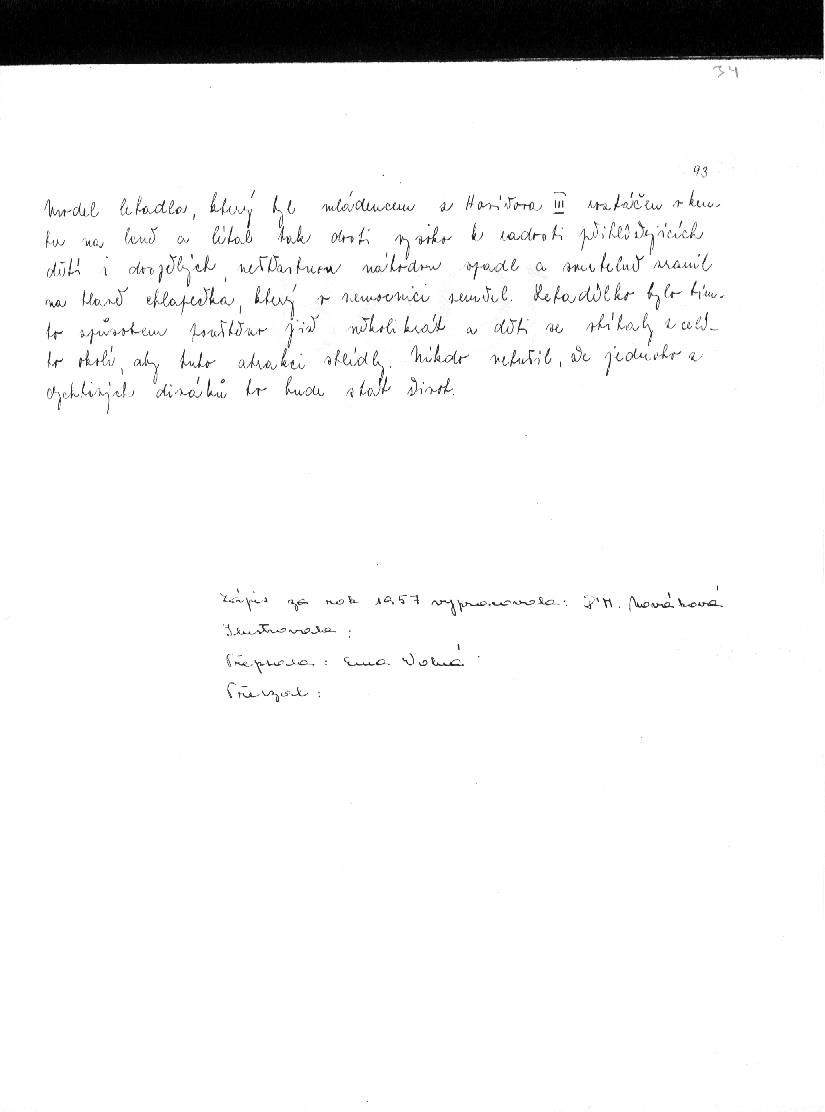 34
93
Model letadla, který byl mládencem z Havířova III roztáčen v kru-
hu na laně a létal tak dosti vysoko k radosti přihlížejících
dětí i dospělých, nešťastnou náhodou spadl a smrtelně zranil
na hlavě chlapečka, který v nemocnici zemřel. Letadélko bylo tím-
to způsobem pouštěno již několikrát a děti se sbíhaly z celé-
ho okolí, aby tuto atrakci shlédly. Nikdo netušil, že jednoho z
rychlých diváků to bude stát život.
Zápis za rok 1957 vypracovala: M. Nováková
Ilustrovala :
Přepsala : Ema Volná
Převzal :